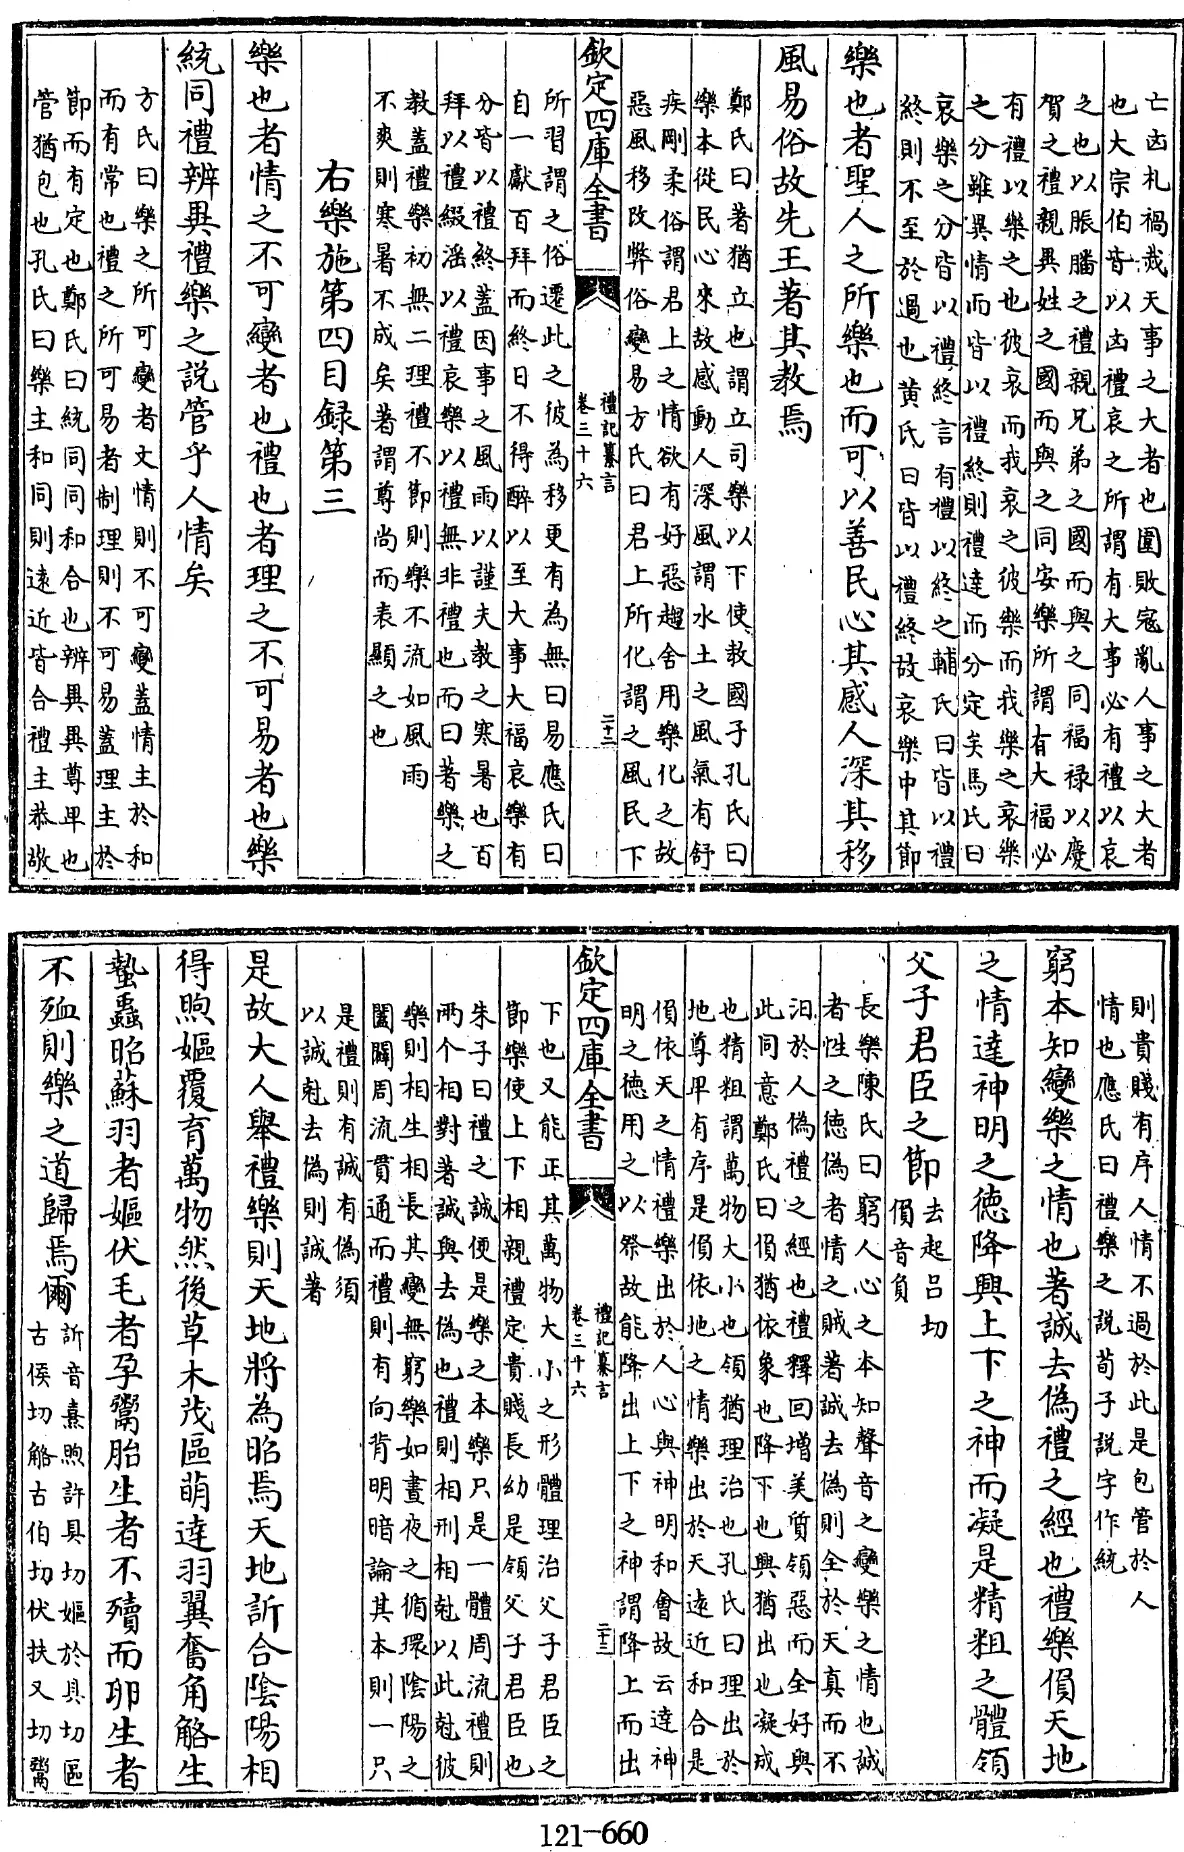 亡凶札禍烖天事之大者也圍敗寇亂人事之大者
也大宗伯皆以凶禮哀之所謂有大事必有禮以哀
之也以脤膰之禮親兄弟之國而與之同福禄以慶
賀之禮親異姓之國而與之同安樂所謂有大福必
有禮以樂之也彼哀而我哀之彼樂而我樂之哀樂
之分雖異情而皆以禮終則禮達而分定矣馬氏曰
哀樂之分皆以禮終言有禮以終之輔氏曰皆以禮
終則不至於過也黃氏曰皆以禮終故哀樂中其節
樂也者聖人之所樂也而可以善民心其感人深其移
風易俗故先王著其教焉
鄭氏曰著猶立也謂立司樂以下使教國子孔氏曰
樂本從民心來故感動人深風謂水土之風氣有舒
疾剛柔俗謂君上之情欲有好惡趨舍用樂化之故
惡風移改弊俗變易方氏曰君上所化謂之風民下
欽定四庫全書
禮記纂言
卷三十六
二十二
所習謂之俗遷此之彼為移更有為無曰易應氏曰
自一獻百拜而終日不得醉以至大事大福哀樂有
分皆以禮終蓋因事之風雨以謹夫教之寒暑也百
拜以禮綴滛以禮哀樂以禮無非禮也而曰著樂之
教蓋禮樂初無二理禮不節則樂不流如風雨
不爽則寒暑不成矣著謂尊尚而表顯之也
右樂施第四目録第三
樂也者情之不可變者也禮也者理之不可易者也樂
統同禮辨異禮樂之說管乎人情矣
方氏曰樂之所可變者文情則不可變蓋情主於和
而有常也禮之所可易者制理則不可易蓋理主於
節而有定也鄭氏曰統同同和合也辨異異尊卑也
管猶包也孔氏曰樂主和同則遠近皆合禮主恭敬
則貴賤有序人情不過於此是包管於人
情也應氏曰禮樂之說荀子說字作統
窮本知變樂之情也著誠去偽禮之經也禮樂偩天地
之情達神明之德降興上下之神而凝是精粗之體領
父子君臣之節
去起吕切
偩音負
長樂陳氏曰窮人心之本知聲音之變樂之情也誠
者性之德偽者情之賊著誠去偽則全於天真而不
汩於人偽禮之經也禮釋回增美質領惡而全好與
此同意鄭氏曰偩猶依象也降下也興猶出也凝成
也精粗謂萬物大小也領猶理治也孔氏曰理出於
地尊卑有序是偩依地之情樂出於天遠近和合是
偩依天之情禮樂出於人心與神明和會故云達神
明之德用之以祭故能降出上下之神謂降上而出
欽定四庫全書
禮記纂言
卷三十六
二十三
下也又能正其萬物大小之形體理治父子君臣之
節樂使上下相親禮定貴賤長幼是領父子君臣也
朱子曰禮之誠便是樂之本樂只是一體周流禮則
兩个相對著誠與去偽也禮則相刑相尅以此尅彼
樂則相生相長其變無窮樂如晝夜之循環陰陽之
闔闢周流貫通而禮則有向背明暗論其本則一只
是禮則有誠有偽須
以誠尅去偽則誠著
是故大人舉禮樂則天地將為昭焉天地訢合陰陽相
得煦嫗覆育萬物然後草木茂區萌達羽翼奮角觡生
蟄蟲昭蘇羽者嫗伏毛者孕鬻胎生者不殰而卵生者
不殈則樂之道歸焉爾
訢音熹煦許具切嫗於具切區
古侯切觡古伯切伏扶又切鬻
121-660